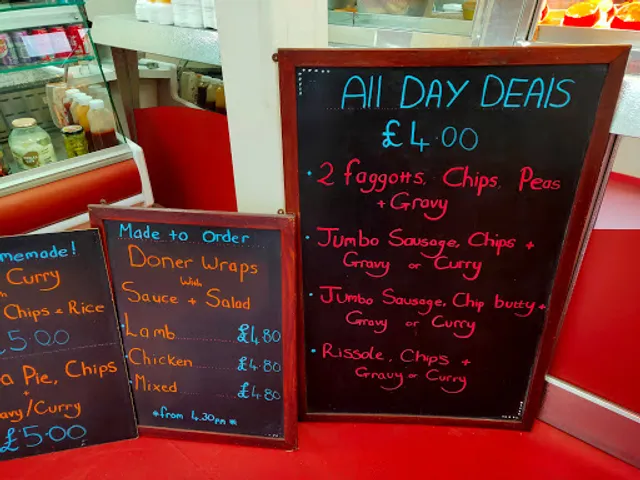 memade!
Curry
Chips + Rice
5.00
Pie, Chips
+
/Curry
£5.00
Made to Order
Doner Wraps
With
Sauce + Salad
Lamb £4.80
Chicken £4.80
Mixed £4.80
*from 4.30pm
All DAY DEALS
£4.00
• 2 faggotts, Chips, Peas
+ Gravy
• Jumbo Sausage, Chips +
Gravy or Curry
• Jumbo Sausage, Chip butty +
Gravy or Curry
• Rissole, Chips +
Gravy or Curry